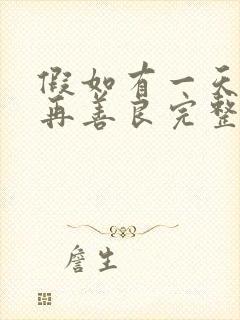 假如有一天
再善良完整
詹生